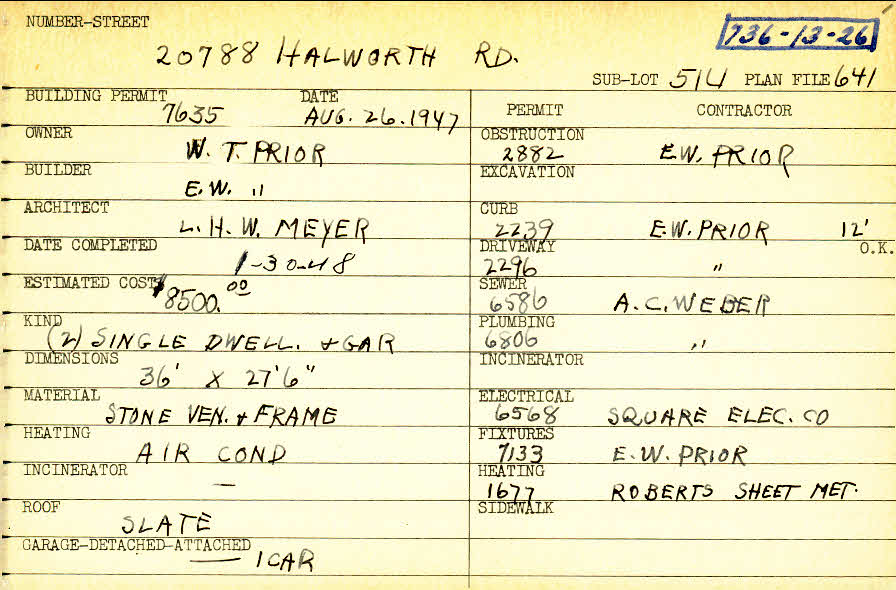 NUMBER-STREET
736-13-26
20788 HALWORTH RD.
SUB-LOT 514 PLAN FILE 641
BUILDING PERMIT DATE
7635 AUG. 26. 1947
OWNER
W. T. PRIOR
BUILDER
E. W. "
ARCHITECT
L. H. W. MEYER
DATE COMPLETED
1-30-48
ESTIMATED COST
$8500.00
KIND
(2) SINGLE DWELL. & GAR
DIMENSIONS
36' X 27'6"
MATERIAL
STONE VEN. & FRAME
HEATING
AIR COND
INCINERATOR
—
ROOF
SLATE
GARAGE-DETACHED-ATTACHED
— 1 CAR
PERMIT CONTRACTOR
OBSTRUCTION
2882 E.W. PRIOR
EXCAVATION
CURB
2239 E.W. PRIOR 12'
DRIVEWAY O.K.
2296 "
SEWER
6586 A.C. WEBER
PLUMBING
6806 "
INCINERATOR
ELECTRICAL
6568 SQUARE ELEC. CO
FIXTURES
7133 E.W. PRIOR
HEATING
1677 ROBERTS SHEET MET.
SIDEWALK